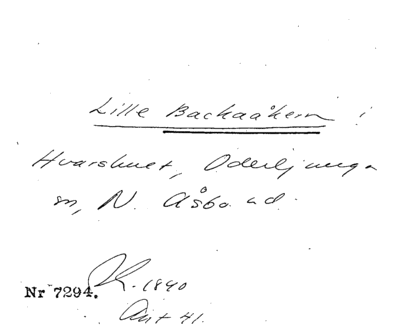 Lille Backaåkern i
Hvarshuet, Oderljunga
sn, N. Åsbo hd.
Nr 7294. K. 1840
Akt 41.